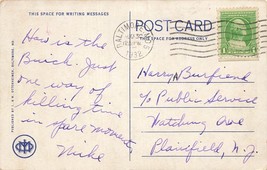 THIS SPACE FOR WRITING MESSAGES
POST CARD
THIS SPACE FOR ADDRESS ONLY
BALTIMORE
How is the
Buick. Just
one way of
killing time
in spare moments
Mike
Harry N Burfiend
c/o Public Service
Watchung Ave
Plainfield, N.J.